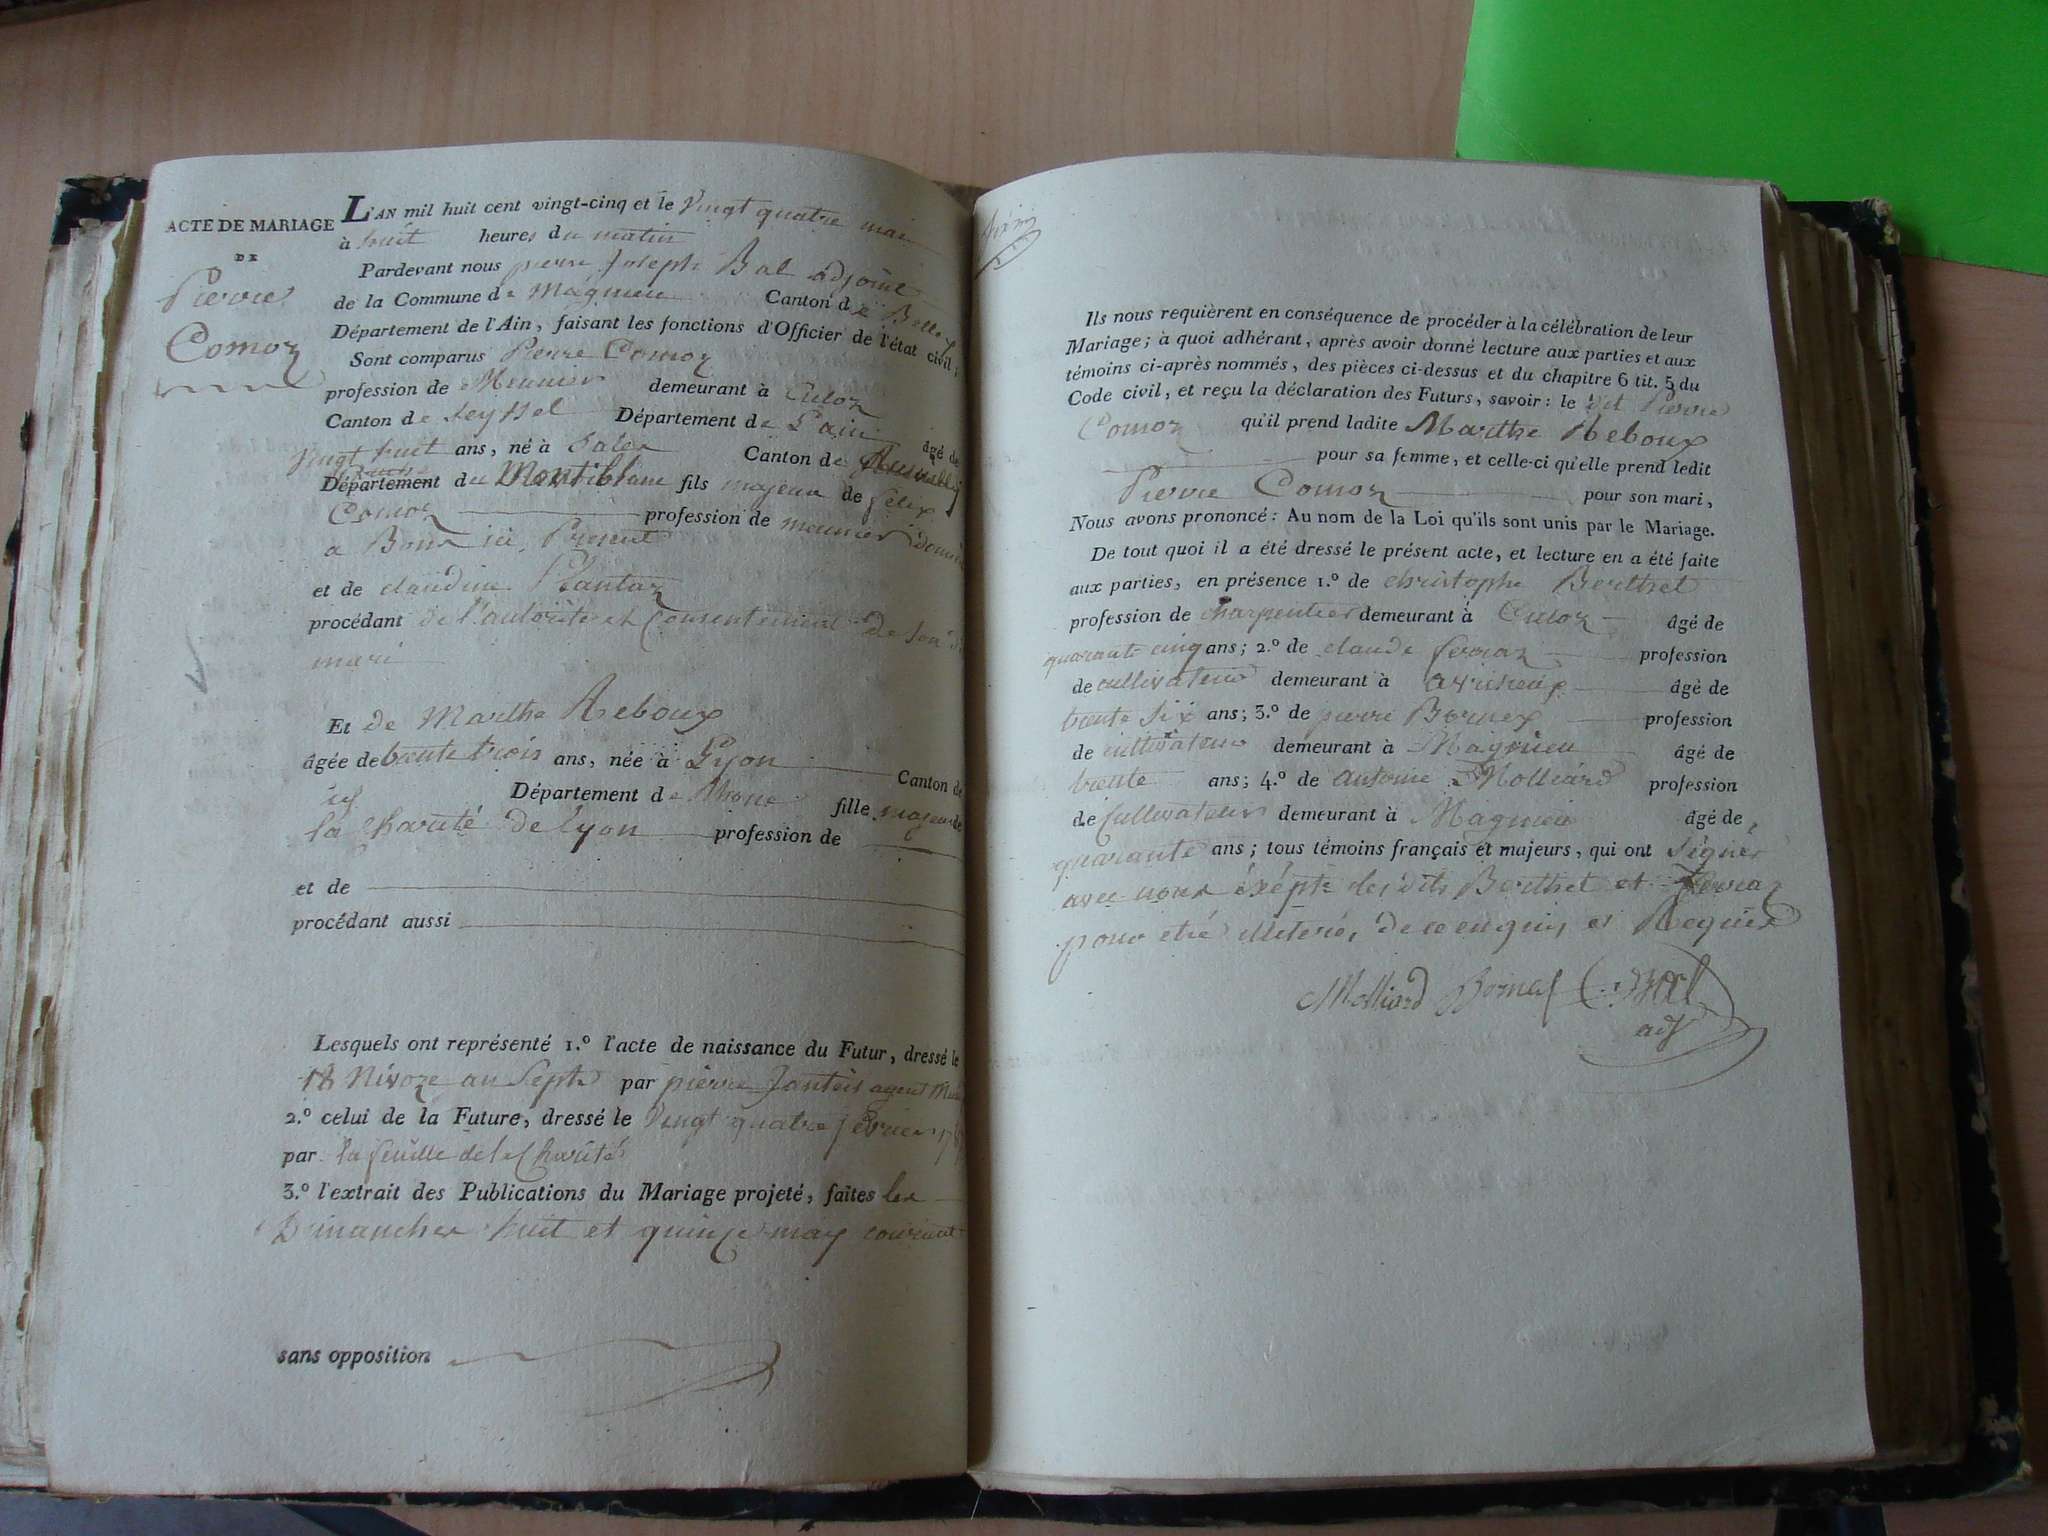 ACTE DE MARIAGE
DE
Pierre
Comoz
L'AN mil huit cent vingt-cinq et le Vingt quatre mai
à huit heures du matin
Pardevant nous pierre Joseph Bal adjoint
de la Commune de Magnieu Canton de Belley
Département de l'Ain, faisant les fonctions d'Officier de l'état civil;
Sont comparus Pierre Comoz
profession de Meunier demeurant à Culoz
Canton de Seyssel Département de L'ain âgé de
Vingt huit ans, né à Canton de
Département du Montiblanc fils majeur de felix
Comoz profession de meunier
a Bons ici Present
et de claudine Plantaz
procédant de l'autorité et Consentement De son
mari
Et de Marthe Reboux
âgée de trente trois ans, née à Lyon Canton de
Département de Rhone fille majeur de
la Charité de Lyon profession de
et de
procédant aussi
Lesquels ont représenté 1.º l'acte de naissance du Futur, dressé le
18 Nivoze an Sept par pierre agent
2.º celui de la Future, dressé le Vingt quatre fevrier
par la feuille de la Charité
3.º l'extrait des Publications du Mariage projeté, faites les
Dimanches huit et quinze may courant
sans opposition
Ils nous requièrent en conséquence de procéder à la célébration de leur
Mariage; à quoi adhérant, après avoir donné lecture aux parties et aux
témoins ci-après nommés, des pièces ci-dessus et du chapitre 6 tit. 5 du
Code civil, et reçu la déclaration des Futurs, savoir: le dit Pierre
Comoz qu'il prend ladite Marthe Reboux
pour sa femme, et celle-ci qu'elle prend ledit
Pierre Comoz pour son mari,
Nous avons prononcé: Au nom de la Loi qu'ils sont unis par le Mariage.
De tout quoi il a été dressé le présent acte, et lecture en a été faite
aux parties, en présence 1.º de christophe Berthet
profession de charpentier demeurant à Culoz âgé de
quarante cinq ans; 2.º de claude ferraz profession
de cultivateur demeurant à âgé de
trente six ans; 3.º de pierre Bornex profession
de cultivateur demeurant à Magnieu âgé de
trente ans; 4.º de antoine Molliard profession
de Cultivateur demeurant à Magnieu âgé de
quarante ans; tous témoins français et majeurs, qui ont signer
avec nous les dits Berthet et ferraz
pour etre de ce enquis et Requis
Molliard Bornex Bal
adj